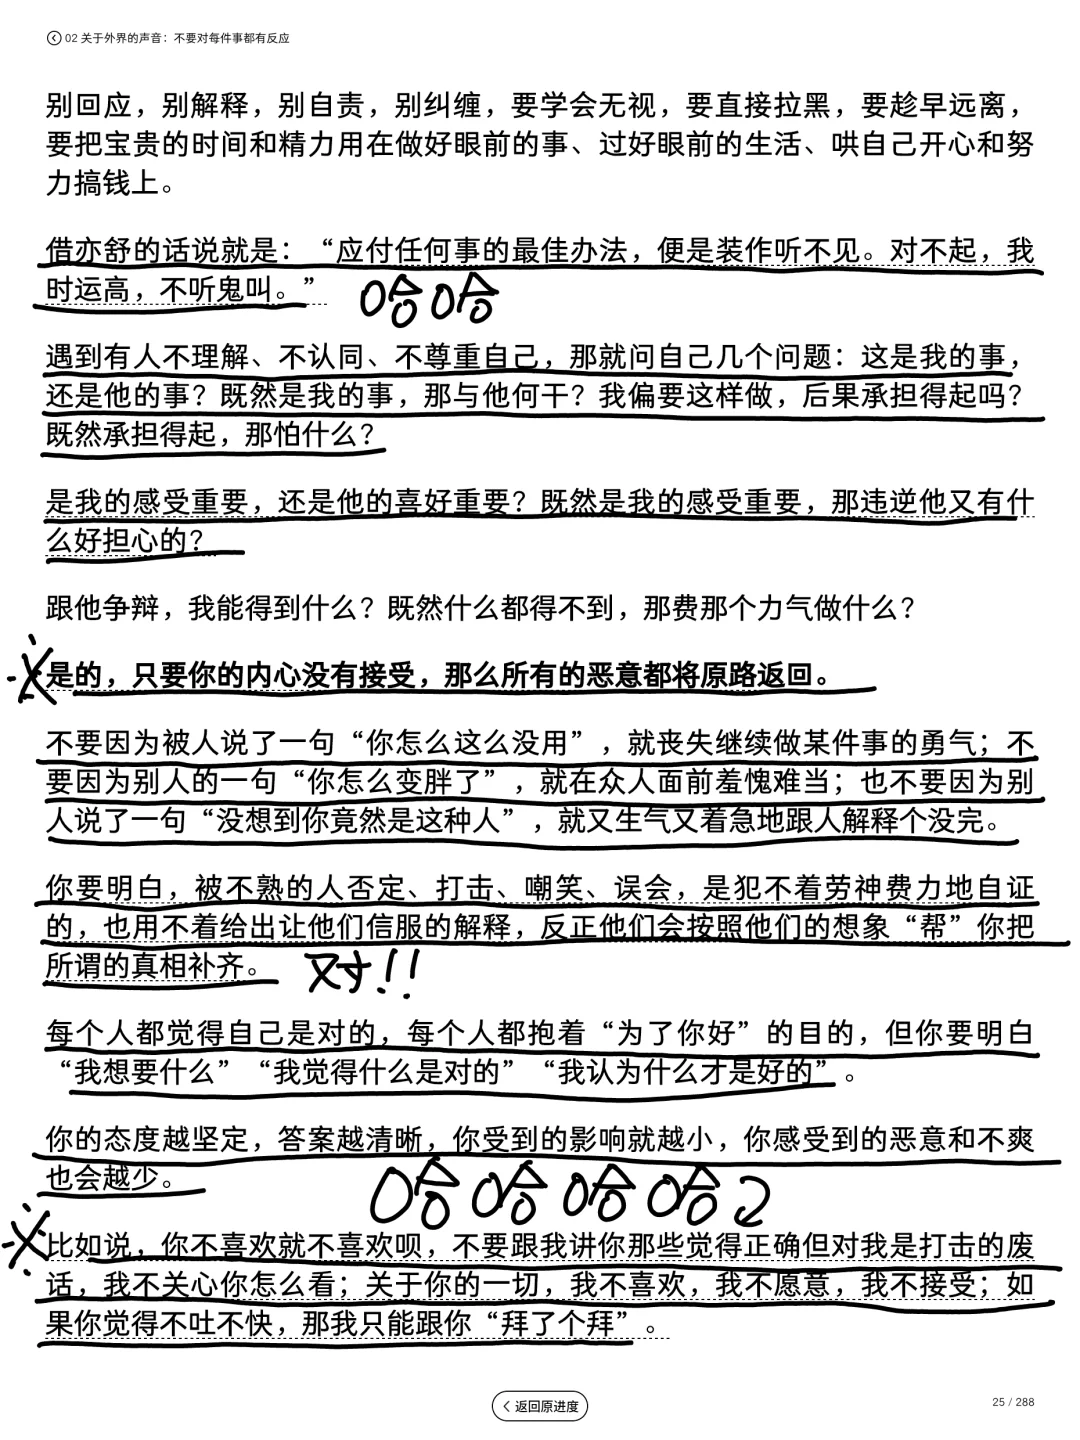 02 关于外界的声音：不要对每件事都有反应
别回应，别解释，别自责，别纠缠，要学会无视，要直接拉黑，要趁早远离，
要把宝贵的时间和精力用在做好眼前的事、过好眼前的生活、哄自己开心和努
力搞钱上。
借亦舒的话说就是：“应付任何事的最佳办法，便是装作听不见。对不起，我
时运高，不听鬼叫。”
哈哈
遇到有人不理解、不认同、不尊重自己，那就问自己几个问题：这是我的事，
还是他的事？既然是我的事，那与他何干？我偏要这样做，后果承担得起吗？
既然承担得起，那怕什么？
是我的感受重要，还是他的喜好重要？既然是我的感受重要，那违逆他又有什
么好担心的？
跟他争辩，我能得到什么？既然什么都得不到，那费那个力气做什么？
是的，只要你的内心没有接受，那么所有的恶意都将原路返回。
不要因为被人说了一句“你怎么这么没用”，就丧失继续做某件事的勇气；不
要因为别人的一句“你怎么变胖了”，就在众人面前羞愧难当；也不要因为别
人说了一句“没想到你竟然是这种人”，就又生气又着急地跟人解释个没完。
你要明白，被不熟的人否定、打击、嘲笑、误会，是犯不着劳神费力地自证
的，也用不着给出让他们信服的解释，反正他们会按照他们的想象“帮”你把
所谓的真相补齐。
对！！
每个人都觉得自己是对的，每个人都抱着“为了你好”的目的，但你要明白
“我想要什么”“我觉得什么是对的”“我认为什么才是好的”。
你的态度越坚定，答案越清晰，你受到的影响就越小，你感受到的恶意和不爽
也会越少。
哈哈哈哈2
比如说，你不喜欢就不喜欢呗，不要跟我讲你那些觉得正确但对我是打击的废
话，我不关心你怎么看；关于你的一切，我不喜欢，我不愿意，我不接受；如
果你觉得不吐不快，那我只能跟你“拜了个拜”。
返回原进度
25 / 288